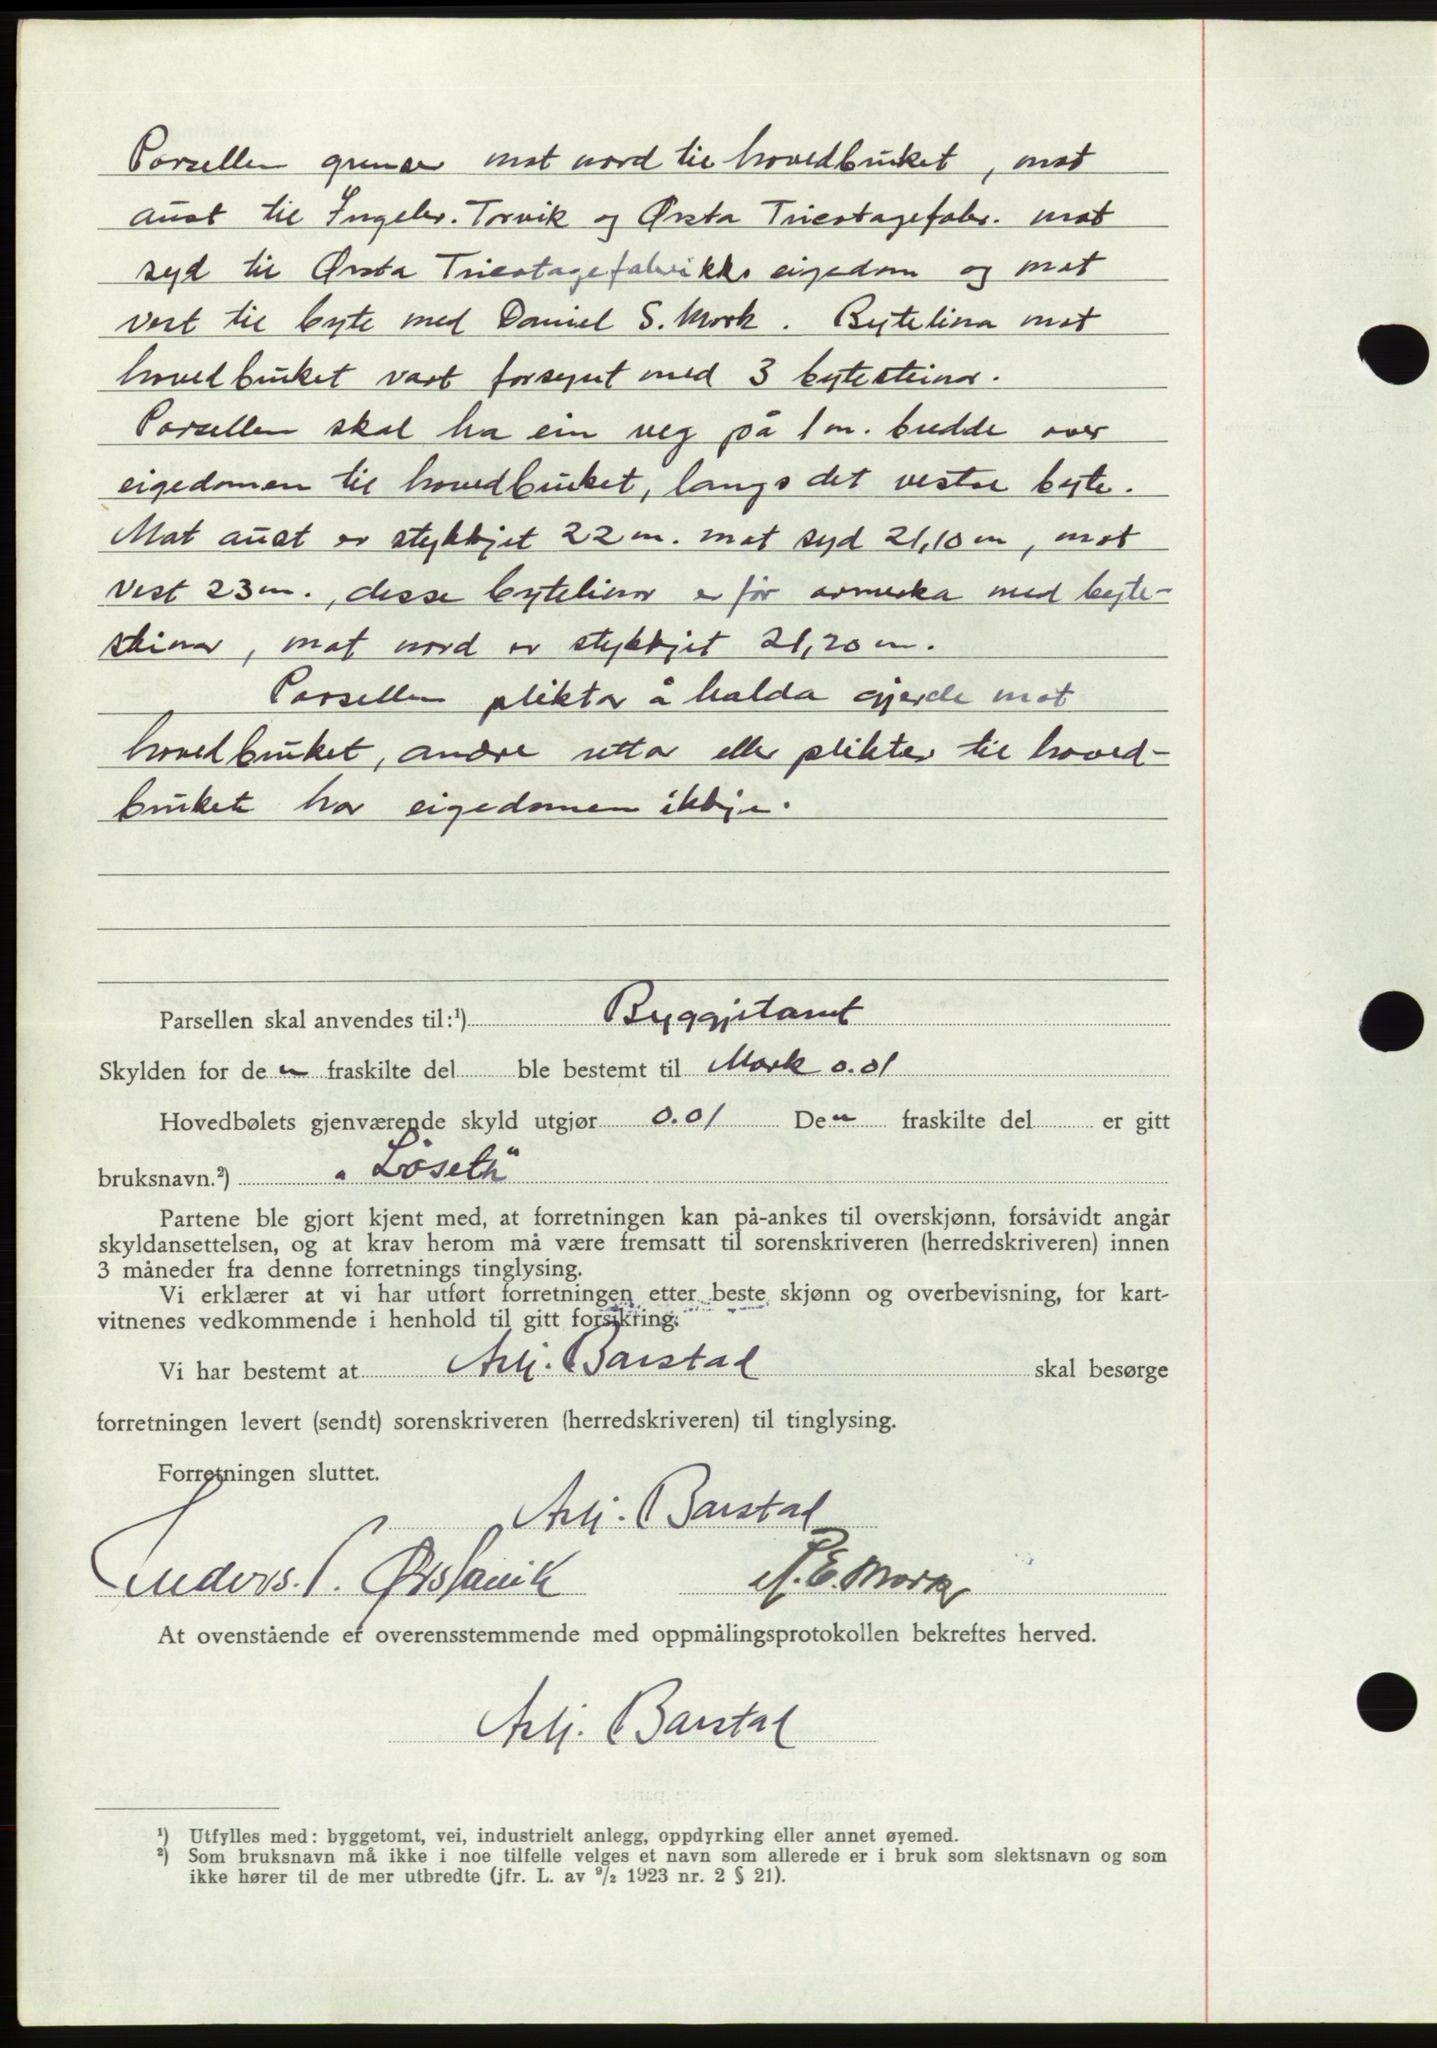 Parsellen grensar mot nord til hovedbruket, mot
aust til Ingebr. Torvik og Ørsta Tricotagefabr. mot
syd til Ørsta Tricotagefabrikks eigedom og mot
vest til byte med Daniel S. Mork. Bytelina mot
hovedbruket vart forsynt med 3 bytesteinar.
Parsellen skal ha ein veg på 1 m. bredde over
eigedomen til hovedbruket, langs det vestre byte.
Mot aust er stykkjet 22 m. mot syd 21,10 m, mot
vest 23 m., desse bytelinor er før avmerka med byte-
steinar, mot nord er stykkjet 21,20 m.
Parsellen pliktar å halda gjerde mot
hovedbruket, andre rettar eller plikter til hoved-
bruket har eigedomen ikkje.
Parsellen skal anvendes til:¹) Byggjetomt
Skylden for de n fraskilte del ble bestemt til Mark 0.01
Hovedbølets gjenværende skyld utgjør 0.01 De n fraskilte del er gitt
bruksnavn.²) „Löseth"
Partene ble gjort kjent med, at forretningen kan på-ankes til overskjønn, forsåvidt angår
skyldansettelsen, og at krav herom må være fremsatt til sorenskriveren (herredskriveren) innen
3 måneder fra denne forretnings tinglysing.
Vi erklærer at vi har utført forretningen etter beste skjønn og overbevisning, for kart-
vitnenes vedkommende i henhold til gitt forsikring.
Vi har bestemt at Asbj. Barstad skal besørge
forretningen levert (sendt) sorenskriveren (herredskriveren) til tinglysing.
Forretningen sluttet.
Asbj. Barstad
Anders. P. Ørstavik P.E. Mork
At ovenstående er overensstemmende med oppmålingsprotokollen bekreftes herved.
Asbj. Barstad
¹) Utfylles med: byggetomt, vei, industrielt anlegg, oppdyrking eller annet øyemed.
²) Som bruksnavn må ikke i noe tilfelle velges et navn som allerede er i bruk som slektsnavn og som
ikke hører til de mer utbredte (jfr. L. av 9/2 1923 nr. 2 § 21).